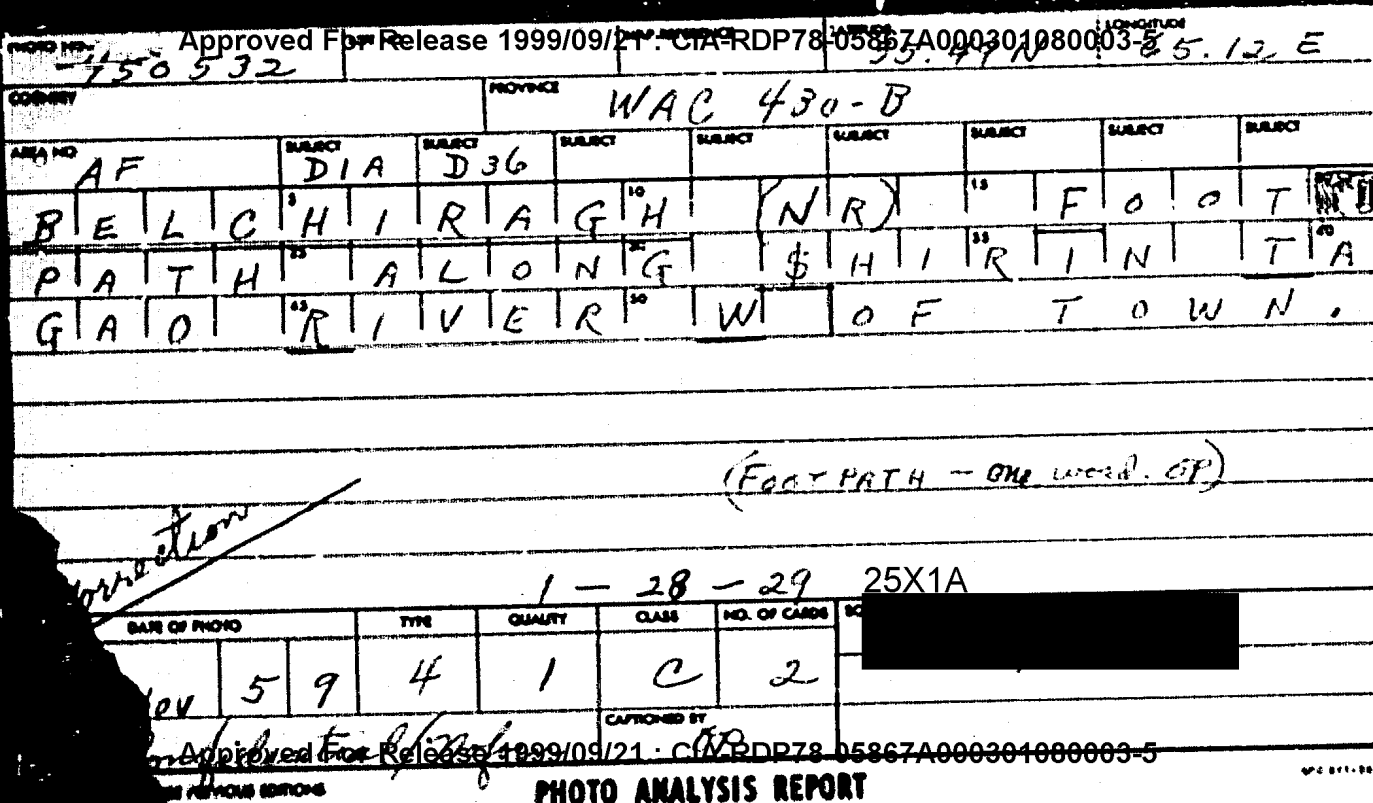 Approved For Release 1999/09/21 : CIA-RDP78-05867A000301080003-5
PHOTO NO. LONGITUDE
150532 N 65.12 E
COUNTRY PROVINCE WAC 430-B
AREA NO SUBJECT SUBJECT SUBJECT SUBJECT SUBJECT SUBJECT SUBJECT SUBJECT
AF D1A D36
BELCHIRAGH (NR) FOOT
PATH ALONG $HIRIN TA
GAO RIVER W OF TOWN.
(FOOTPATH - one word. GP)
correction
1 - 28 - 29 25X1A
DATE OF PHOTO TYPE QUALITY CLASS NO. OF CARDS
Nov 59 4 1 C 2
CAPTIONED BY
Approved For Release 1999/09/21 : CIA-RDP78-05867A000301080003-5
PREVIOUS EDITIONS PHOTO ANALYSIS REPORT